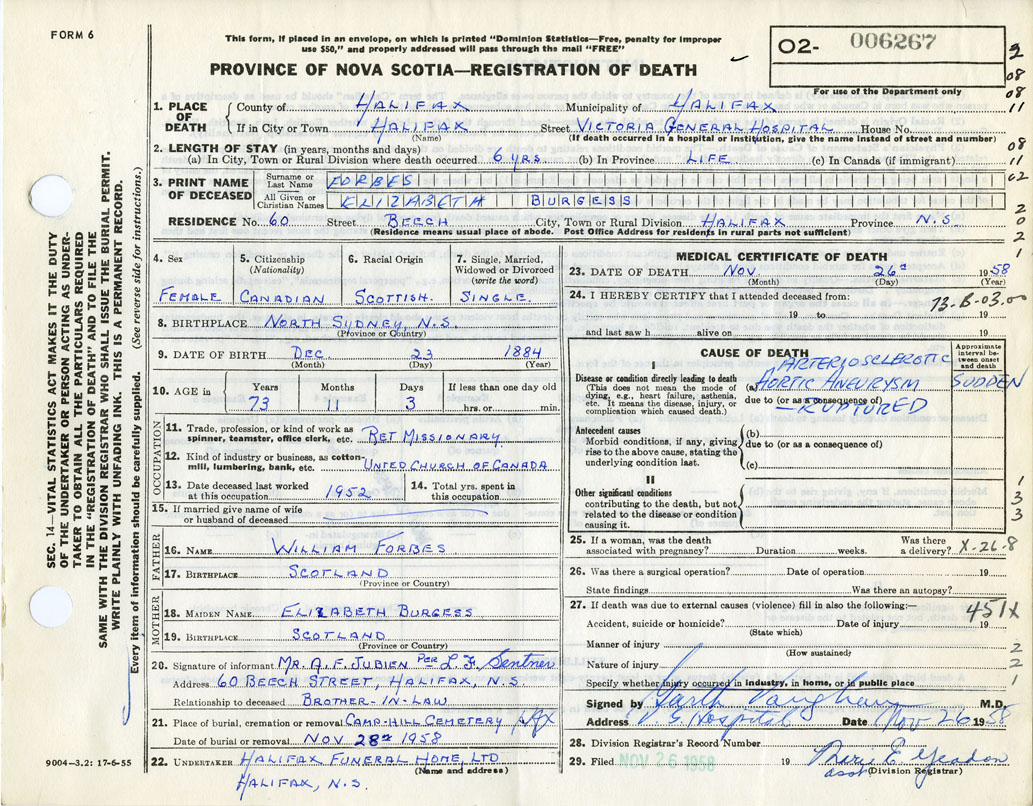 FORM 6
This form, if placed in an envelope, on which is printed "Dominion Statistics—Free, penalty for improper
use $50," and properly addressed will pass through the mail "FREE"
O2- 006267
PROVINCE OF NOVA SCOTIA—REGISTRATION OF DEATH
For use of the Department only
9
08
08
11
08
11
02
2
0
2
1
SEC. 14—VITAL STATISTICS ACT MAKES IT THE DUTY
OF THE UNDERTAKER OR PERSON ACTING AS UNDER-
TAKER TO OBTAIN ALL THE PARTICULARS REQUIRED
IN THE "REGISTRATION OF DEATH" AND TO FILE THE
SAME WITH THE DIVISION REGISTRAR WHO SHALL ISSUE THE BURIAL PERMIT.
WRITE PLAINLY WITH UNFADING INK. THIS IS A PERMANENT RECORD.
Every item of information should be carefully supplied. (See reverse side for instructions.)
1. PLACE OF DEATH County of HALIFAX Municipality of HALIFAX
If in City or Town HALIFAX Street VICTORIA GENERAL HOSPITAL House No.
(Name) (If death occurred in a hospital or institution, give the name instead of street and number)
2. LENGTH OF STAY (in years, months and days)
(a) In City, Town or Rural Division where death occurred 6 YRS (b) In Province LIFE (c) In Canada (if immigrant)
3. PRINT NAME OF DECEASED Surname or Last Name FORBES
All Given or Christian Names ELIZABETH BURGESS
RESIDENCE No. 60 Street BEECH City, Town or Rural Division HALIFAX Province N.S.
(Residence means usual place of abode. Post Office Address for residents in rural parts not sufficient)
4. Sex 5. Citizenship (Nationality) 6. Racial Origin 7. Single, Married, Widowed or Divorced (write the word)
FEMALE CANADIAN SCOTTISH. SINGLE.
8. BIRTHPLACE NORTH SYDNEY, N.S.
(Province or Country)
9. DATE OF BIRTH DEC 23 1884
(Month) (Day) (Year)
10. AGE in Years Months Days If less than one day old
73 11 3 hrs. or min.
OCCUPATION
11. Trade, profession, or kind of work as
spinner, teamster, office clerk, etc. RET MISSIONARY
12. Kind of industry or business, as cotton-
mill, lumbering, bank, etc. UNITED CHURCH OF CANADA
13. Date deceased last worked at this occupation 1952 14. Total yrs. spent in this occupation
15. If married give name of wife
or husband of deceased
FATHER
16. NAME WILLIAM FORBES
17. BIRTHPLACE SCOTLAND
(Province or Country)
MOTHER
18. MAIDEN NAME ELIZABETH BURGESS
19. BIRTHPLACE SCOTLAND
(Province or Country)
20. Signature of informant MR. A. F. JUBIEN PER L. F. Sentner
Address 60 BEECH STREET, HALIFAX, N.S.
Relationship to deceased BROTHER-IN-LAW
21. Place of burial, cremation or removal CAMP-HILL CEMETERY Hfx
Date of burial or removal NOV 28th 1958
22. UNDERTAKER HALIFAX FUNERAL HOME, LTD
(Name and address)
HALIFAX, N.S.
9004—3.2: 17-6-55
MEDICAL CERTIFICATE OF DEATH
23. DATE OF DEATH NOV. 26th 1958
(Month) (Day) (Year)
24. I HEREBY CERTIFY that I attended deceased from: 73-B-03.00
19 to 19
and last saw h alive on 19
CAUSE OF DEATH
Approximate interval between onset and death
I
Disease or condition directly leading to death
(This does not mean the mode of
dying, e.g., heart failure, asthenia,
etc. It means the disease, injury, or
complication which caused death.)
ARTERIOSCLEROTIC
(a) AORTIC ANEURYSM SUDDEN
due to (or as a consequence of)
—RUPTURED
Antecedent causes
Morbid conditions, if any, giving
rise to the above cause, stating the
underlying condition last.
(b)
due to (or as a consequence of)
(c)
II
Other significant conditions
contributing to the death, but not
related to the disease or condition
causing it.
1
3
3
25. If a woman, was the death associated with pregnancy? Duration weeks. Was there a delivery? X-26-8
26. Was there a surgical operation? Date of operation 19
State findings Was there an autopsy?
27. If death was due to external causes (violence) fill in also the following:— 451X
Accident, suicide or homicide? Date of injury 19
(State which)
Manner of injury 2
(How sustained)
Nature of injury 2
Specify whether injury occurred in industry, in home, or in public place 1
Signed by Garth Vaughan M.D.
Address V. G. Hospital Date Nov 26 1958
28. Division Registrar's Record Number
29. Filed NOV 26 1958 19 Marie E.
asst (Division Registrar)